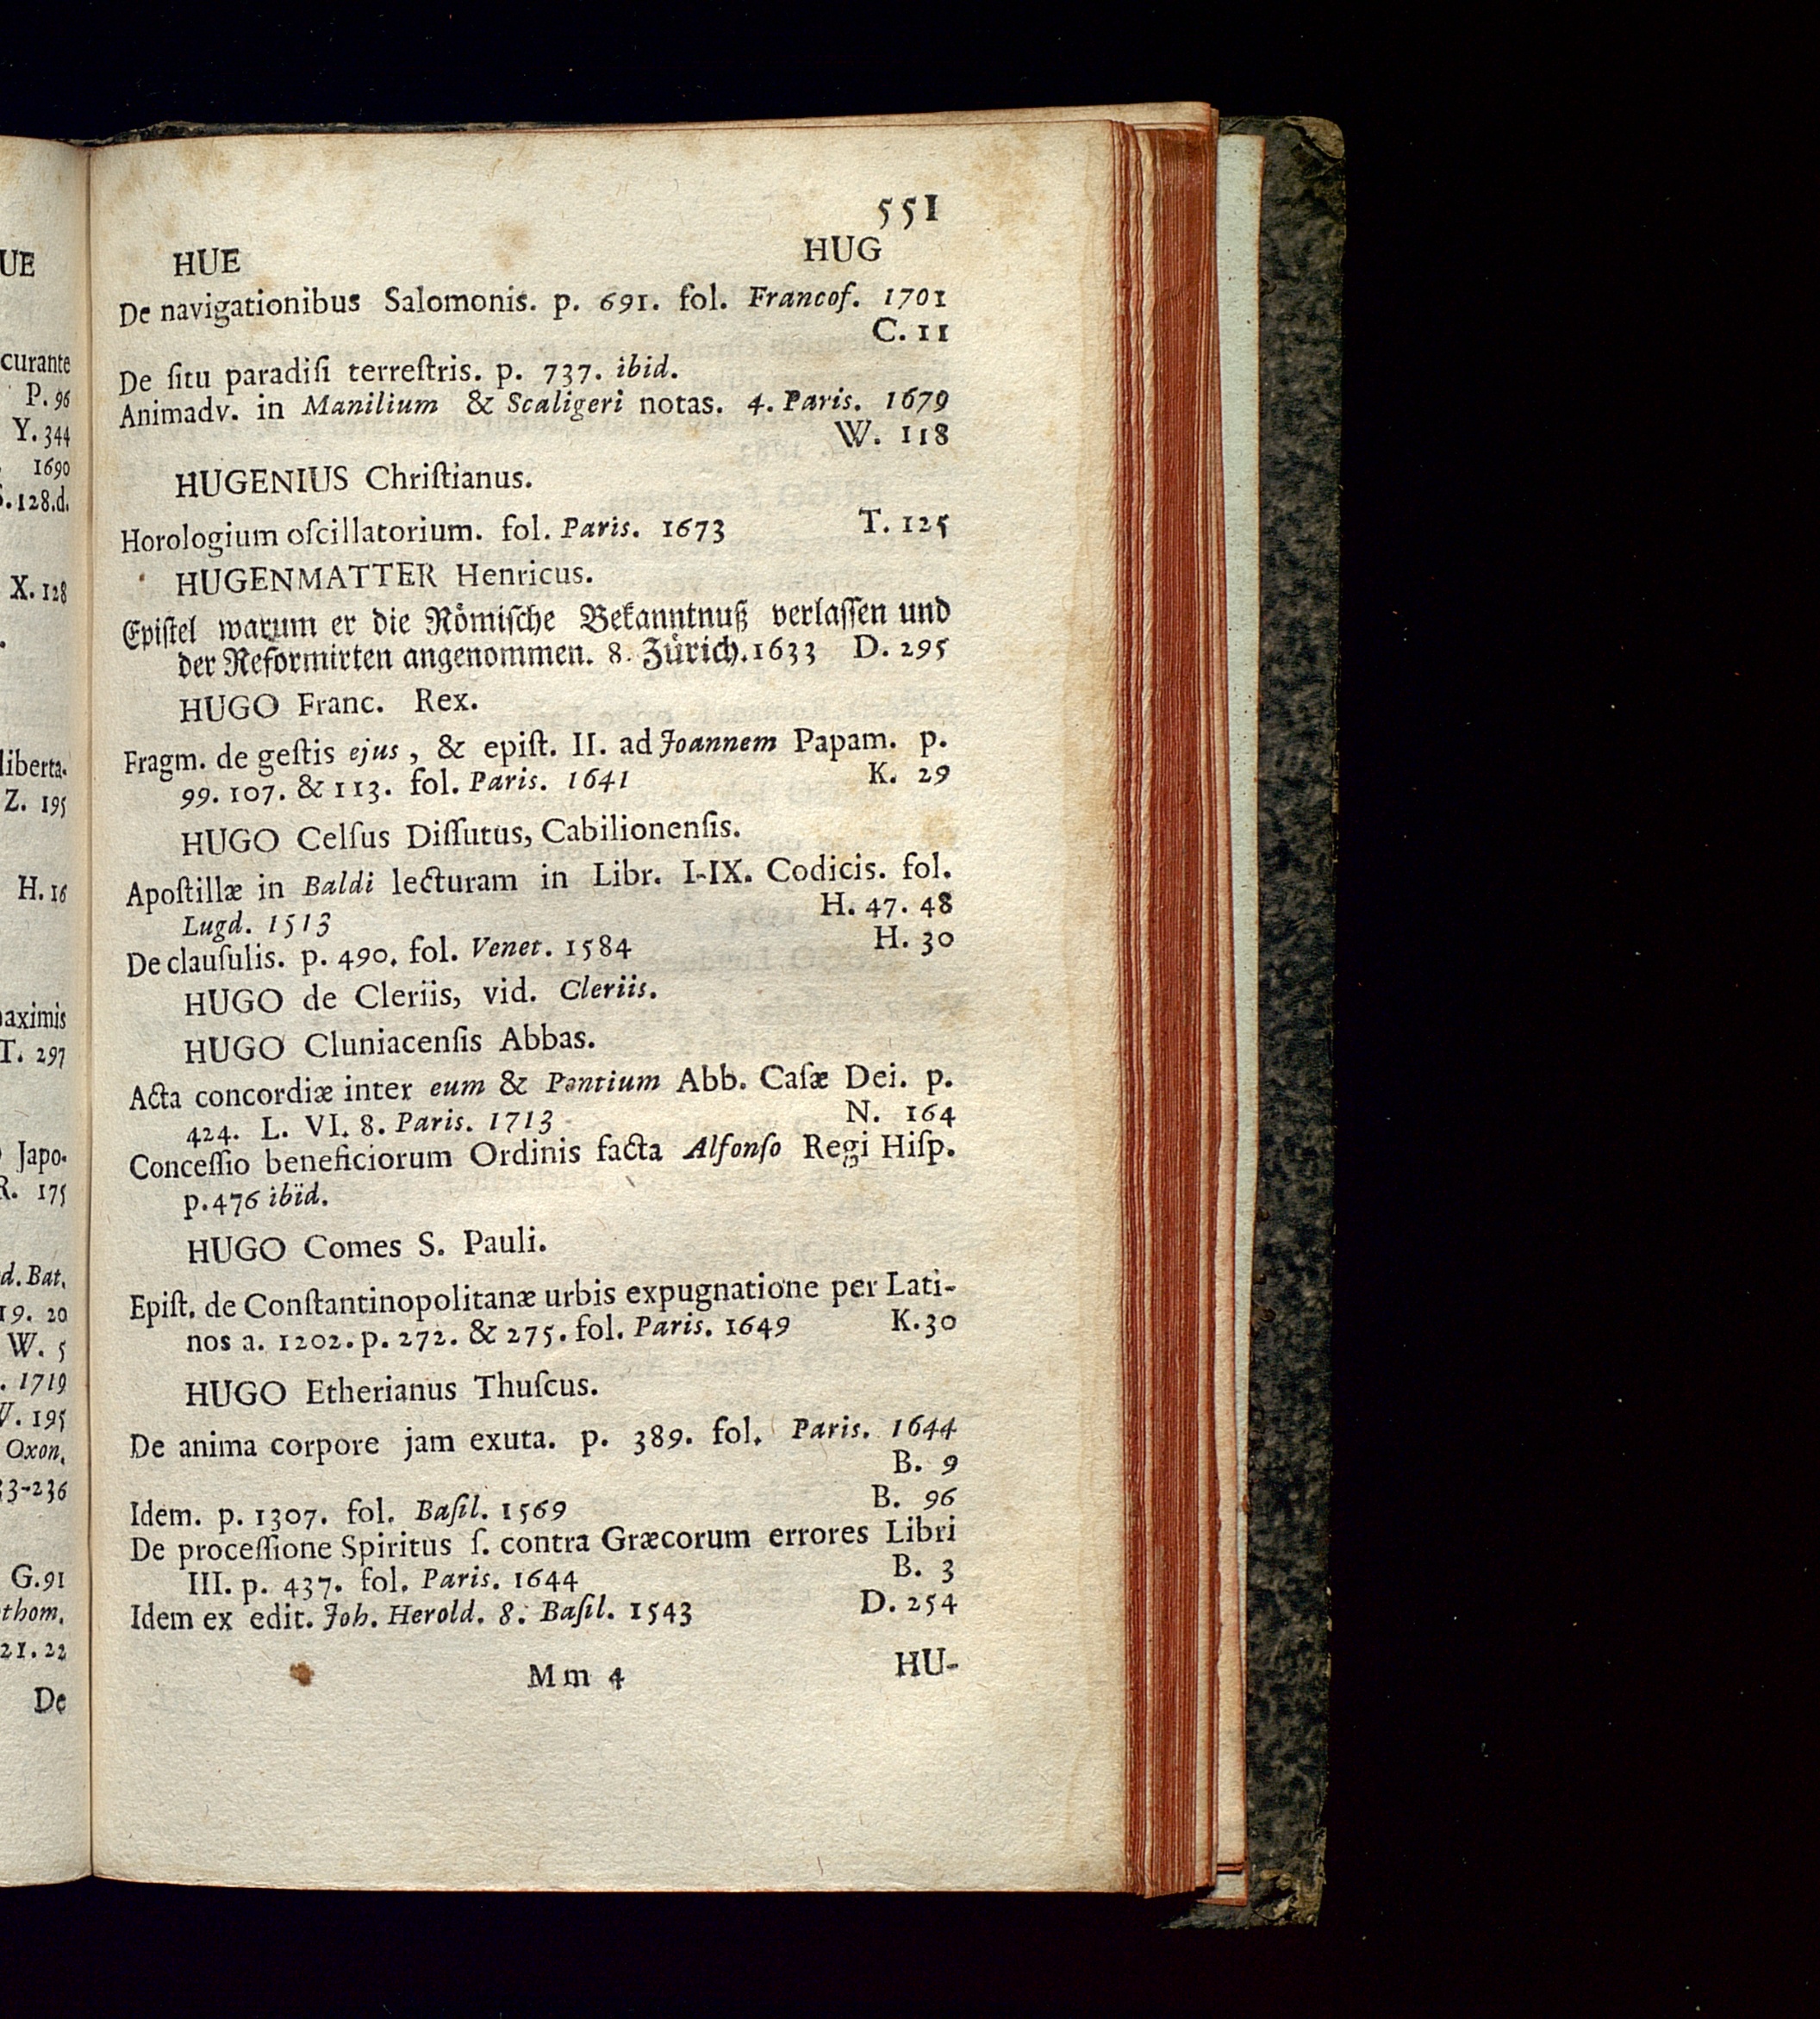 UE
curante
P. 96
Y. 344
1690
.128.d.
X. 128
liberta-
Z. 195
H. 16
aximis
T. 297
Japo-
R. 175
d. Bat.
19. 20
W. 5
. 1719
W. 195
Oxon.
33-236
G.91
thom.
21. 22
De
551
HUE HUG
De navigationibus Salomonis. p. 691. fol. Francof. 1701
C. 11
De ſitu paradiſi terreſtris. p. 737. ibid.
Animadv. in Manilium & Scaligeri notas. 4. Paris. 1679
W. 118
HUGENIUS Chriſtianus.
Horologium oſcillatorium. fol. Paris. 1673 T. 125
HUGENMATTER Henricus.
Epiſtel warum er die Römiſche Bekanntnuß verlaſſen und
der Reformirten angenommen. 8. Zürich. 1633 D. 295
HUGO Franc. Rex.
Fragm. de geſtis ejus, & epiſt. II. ad Joannem Papam. p.
99. 107. & 113. fol. Paris. 1641 K. 29
HUGO Celſus Diſſutus, Cabilionenſis.
Apoſtillæ in Baldi lecturam in Libr. I-IX. Codicis. fol.
Lugd. 1513 H. 47. 48
De clauſulis. p. 490. fol. Venet. 1584 H. 30
HUGO de Cleriis, vid. Cleriis.
HUGO Cluniacenſis Abbas.
Acta concordiæ inter eum & Pontium Abb. Caſæ Dei. p.
424. L. VI. 8. Paris. 1713 N. 164
Conceſſio beneficiorum Ordinis facta Alfonſo Regi Hiſp.
p. 476 ibid.
HUGO Comes S. Pauli.
Epiſt. de Conſtantinopolitanæ urbis expugnatione per Lati-
nos a. 1202. p. 272. & 275. fol. Paris. 1649 K. 30
HUGO Etherianus Thuſcus.
De anima corpore jam exuta. p. 389. fol. Paris. 1644
B. 9
Idem. p. 1307. fol. Baſil. 1569 B. 96
De proceſſione Spiritus ſ. contra Græcorum errores Libri
III. p. 437. fol. Paris. 1644 B. 3
Idem ex edit. Joh. Herold. 8. Baſil. 1543 D. 254
Mm 4 HU-